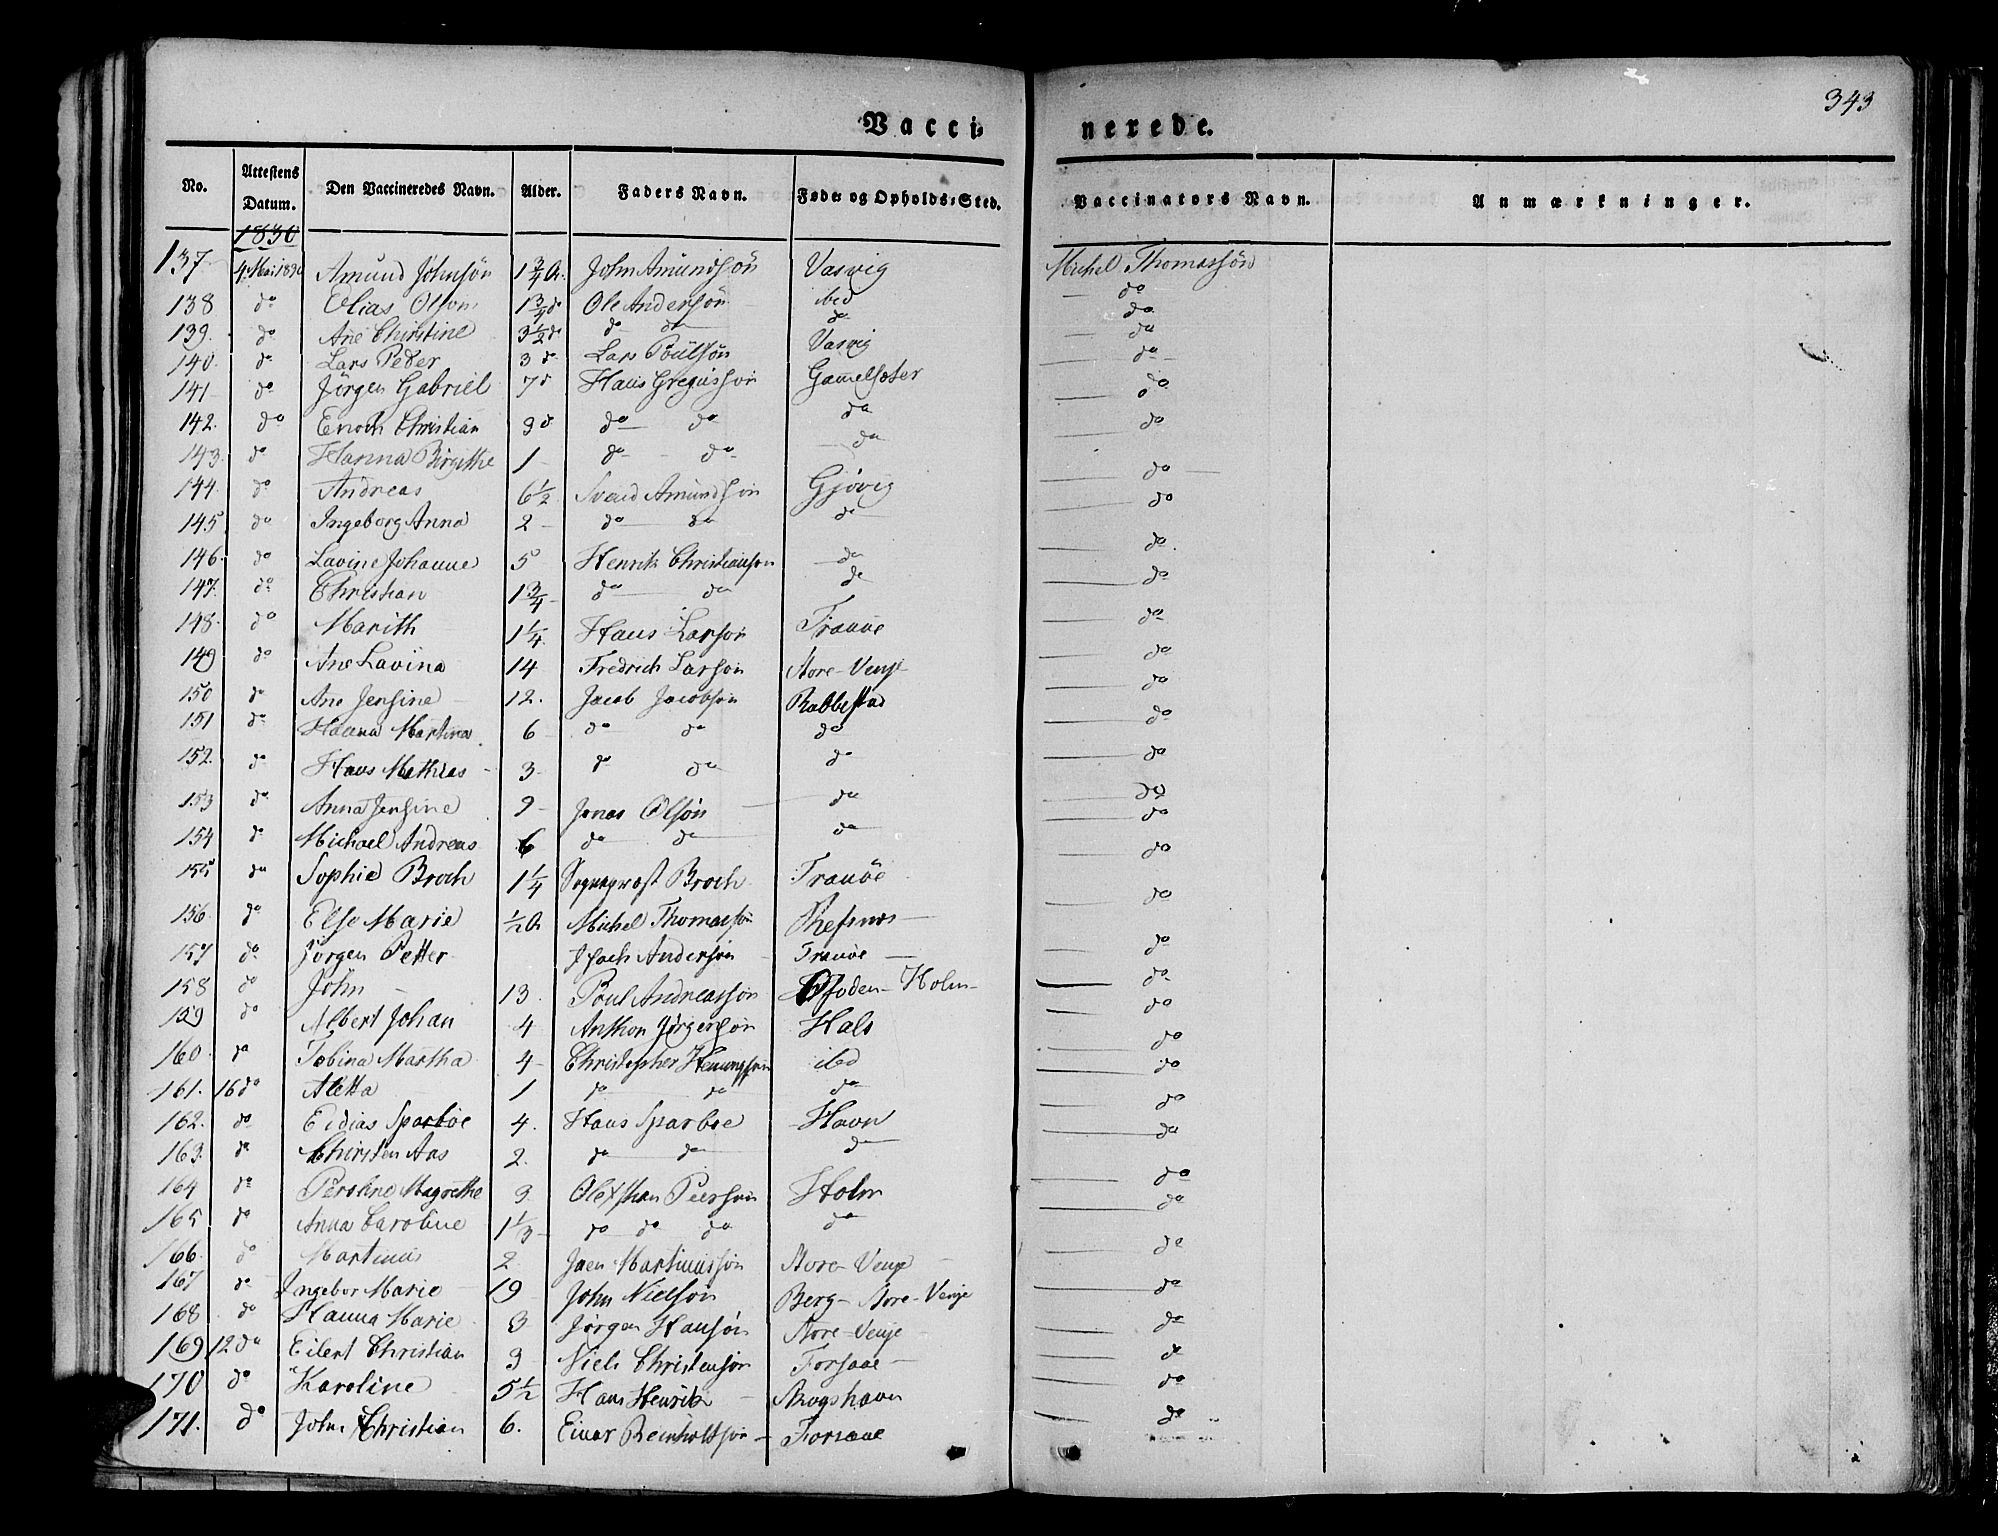 343
Vacci- nerede.
No. Attestens Datum. Den Vaccineredes Navn. Alder. Faders Navn. Føde- og Opholds-Sted. Vaccinators Navn. Anmærkninger.
1830
137 4 Mai 1830 Amund Johnsøn 1 3/4 A. John Amundsøn Vasvig Michel Thomassøn
138 do Elias Olson 1 3/4 do Ole Andersøn ibed do
139. do Ane Christine 3 1/2 do do do do do
140. do Lars Peder 3 do Lars Poulsøn Vasvig do
141 do Jørgen Gabriel 7 d Hans Gregussøn Gamelsæter do
142. do Enoch Christian 3 d do do do do
143. do Hanna Birgithe 1 do do do do
144. do Andreas 6 1/2 Svend Amundsøn Gjøvig do
145 do Ingeborg Anna 2 do do do do
146. do Lavine Johanne 5 Henrik Christiansøn do do
147. do Christian 1 3/4 do do do do
148. do Marith 1 1/4 Hans Larsøn Tranøe do
149 do Ane Lavina 14 Fredrich Larsøn Store-Venje do
150 do Ane Jensine 12. Jacob Jacobsøn Rabbestad do
151 do Hanna Martina 6 do do do do
152. do Hans Mathias 3 do do do do
153 do Anna Jensine 9 Jonas Olsøn do do
154 do Michael Andreas 6 do do do do
155 do Sophie Broch 1 1/4 Sogneprost Broch Tranöe do
156. do Else Marie 1/2 A Michel Thomassøn Refsnes do
157 do Jørgen Petter Isach Andersøn Tranøe do
158 do John 13. Poul Andreassøn Holm do
159 do Albert Johan 4 Anthon Jørgensøn Hals do
160. do Tobina Martha 4 Christopher Hemingsøn ibd do
161. 16 do Aletta 1 do do do do
162. do Eidias Sparboe 4. Hans Sparboe Havn do
163. do Christen Aas 2. do do do do
164 do Peroline Magrethe 3 Peersøn Holm do
165 do Anna Caroline 1 1/3 do do do do do
166. do Martinus 2 Jaen Martinussøn Store Venje do
167 do Ingebor Marie 19 John Nielsøn Berg-Store-Venje do
168 do Hanna Marie 3 Jørgen Hansøn Store-Venje do
169 12 do Eilert Christian 3 Niels Christensøn Forsaae do
170 do Karoline 5 1/2 Hans Henrik Skogshavn do
171. do John Christian 6. Einar Reinholtsøn Forsaae do